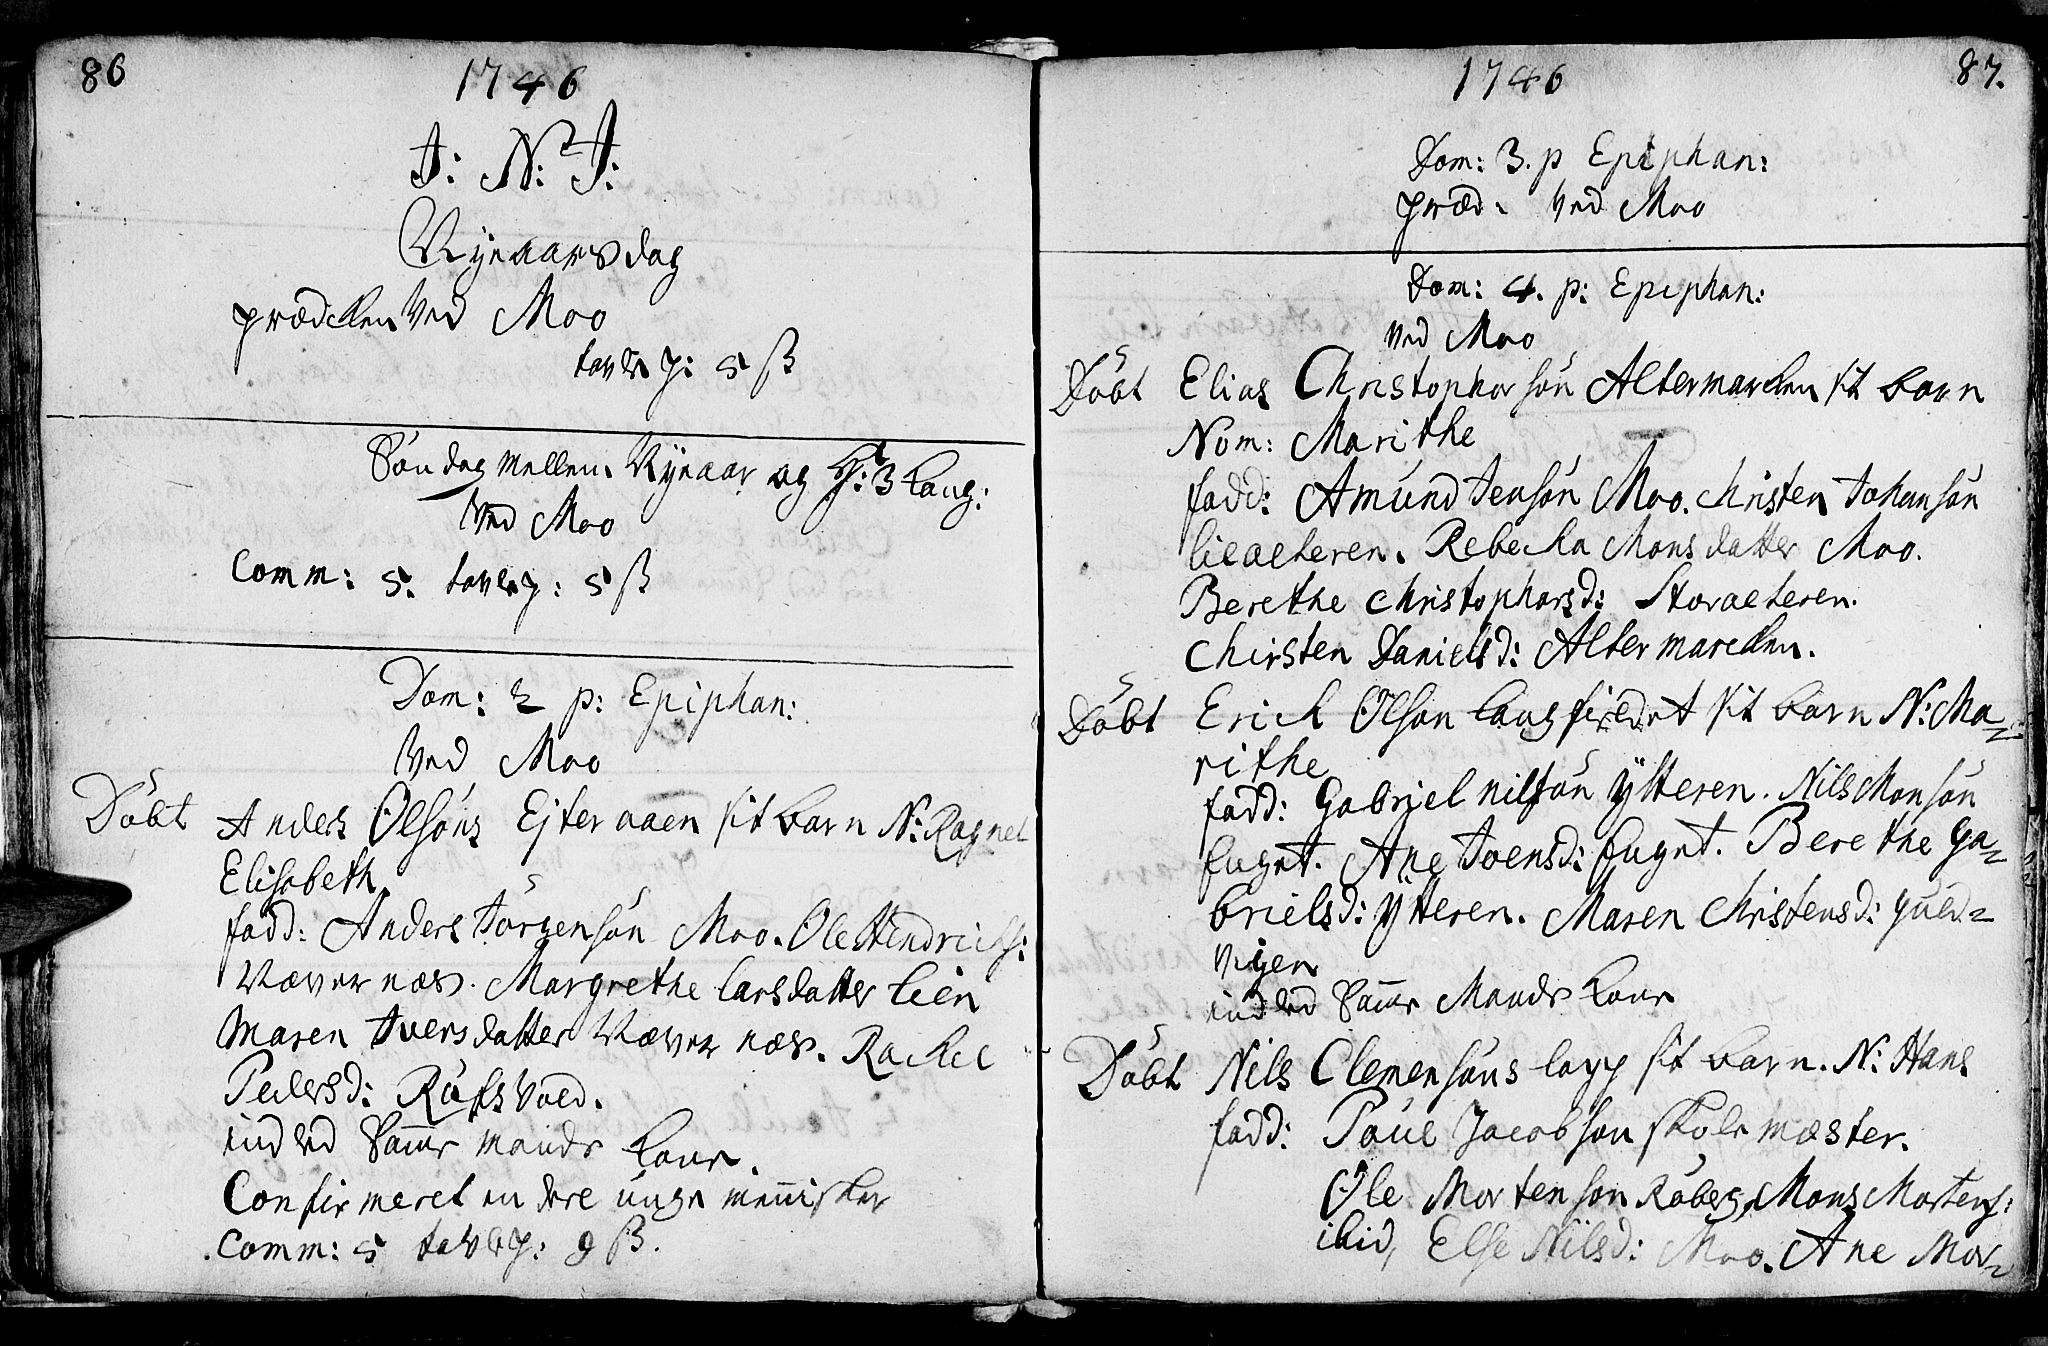 86
1746
J: N: J:
Nyeaarsdag
prædicken Ved Moo
tavlep: 5 β
Söndag mellem Nyeaar og H: 3 Kong:
Ved Moo
Comm: 5. tavlep: 5 β
Dom: 2 p: Epiphan:
Ved Moo
Döbt Anders Olsöns Ejteraaen sit barn N: Ragnel
Elisabeth
fadd: Anders Jörgensön Moo. Ole Hendrichs:
Nævernæs. Margrethe Larsdatter Lien
Maren Iversdatter Næver næs. Rachel
Pedersd: Rüfsvold.
indled samme mands Kone.
Confirmeret en dere unge mennisker
Comm: 5 tavlep: 9 β.
1746
87.
Dom: 3. p Epiphan:
præd. Ved Moo
Dom: 4. p: Epiphan:
Ved Moo
Döbt Elias Christophersön Altermarcken sit barn
Nom: Marithe
fadd: Amund Jensön Moo. Christen Johansön
Lilealteren. Rebecka Monsdatter Moo.
Berethe Christophersd: Storalteren.
Chirsten Danielsd: Altermarcken.
Döbt Erich Olson Langfirdet sit barn N: Ma=
rithe
fadd: Gabriel Nilsön Ytteren. Nils Monsön
Ane Joensd: Berethe Ga=
brielsd: Ytteren. Maren Christensd:
vigen
indled samme Mands Kone
Döbt Nils Clemensöns lapp sit barn. N: Hans
fadd: Poul Jacobson skole mæster.
Ole Mortenson Röberg, Mons Mortens:
ibid, Else Nilsd: Moo. Ane Mor=